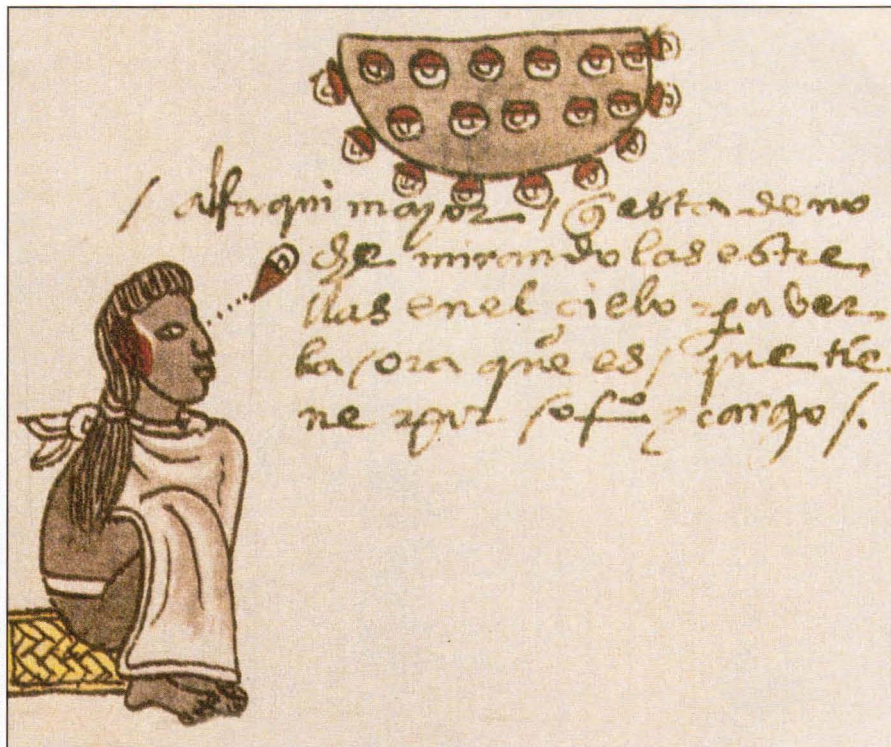 / alfaqui mayor / q̃ esta de no
che mirando las estre
llas en el cielo pa ver
la ora que es / que tie
ne por ofio y cargo /.